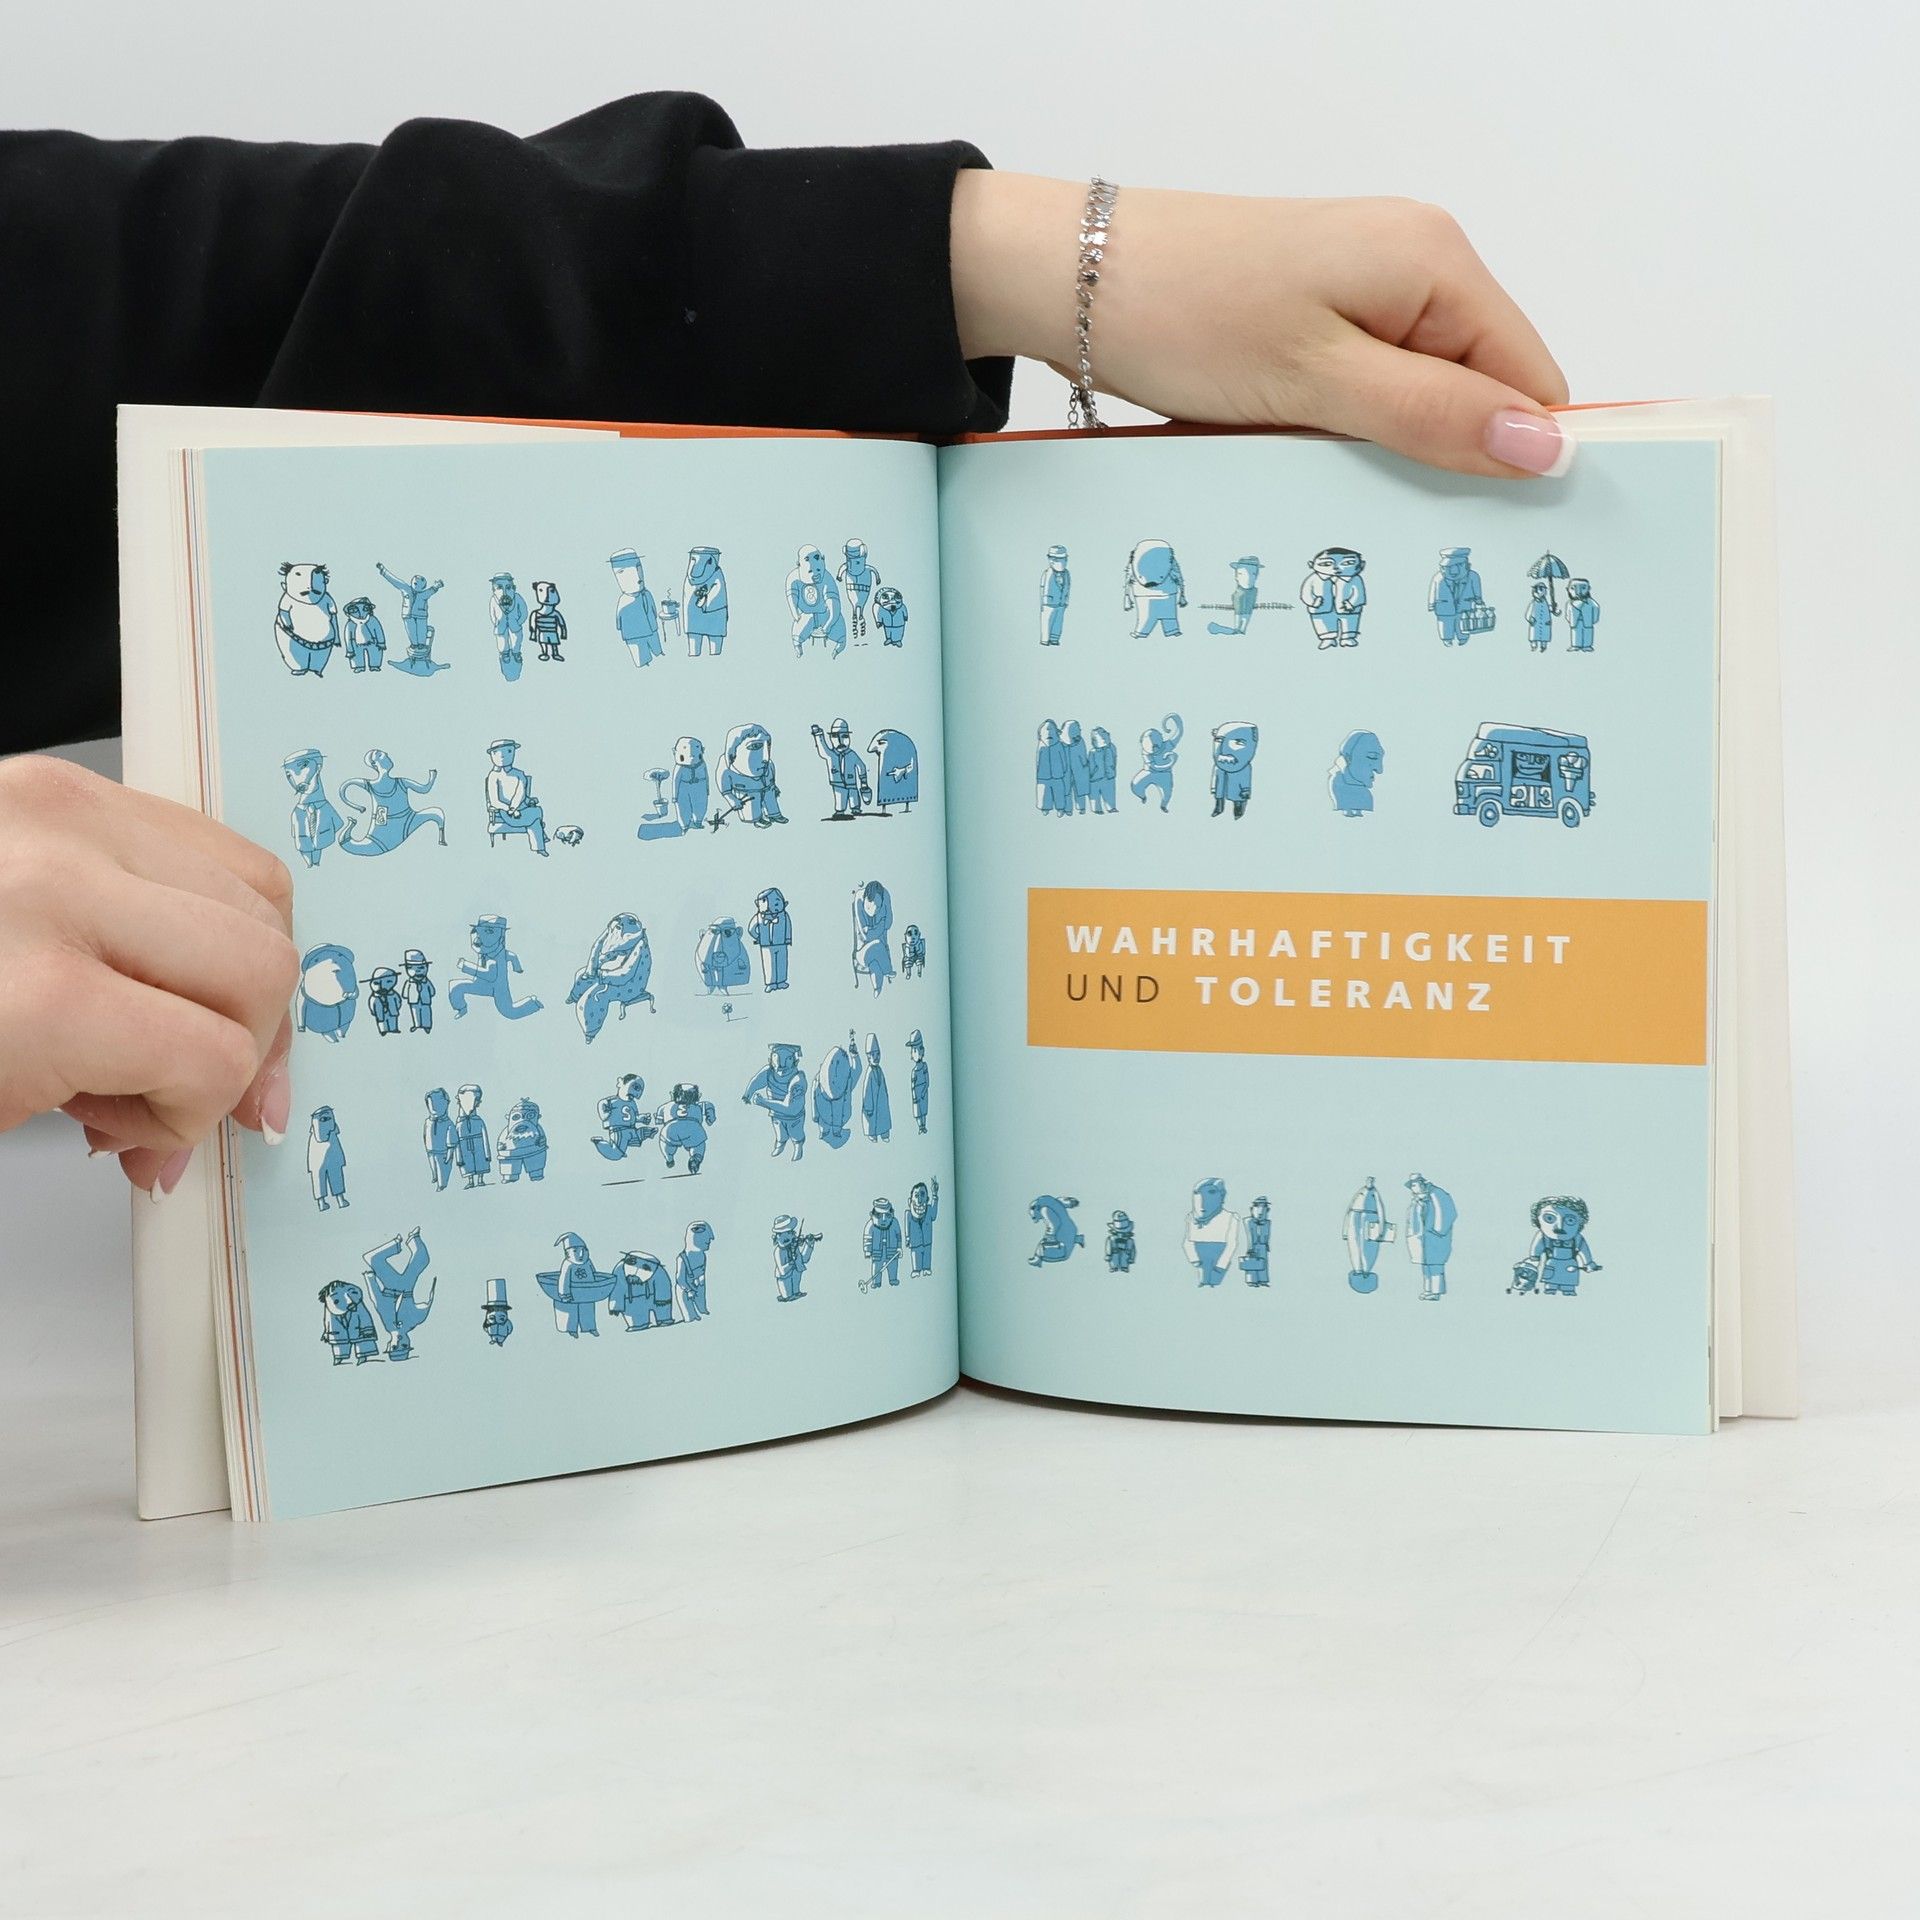 213
WAHRHAFTIGKEIT
UND TOLERANZ
S